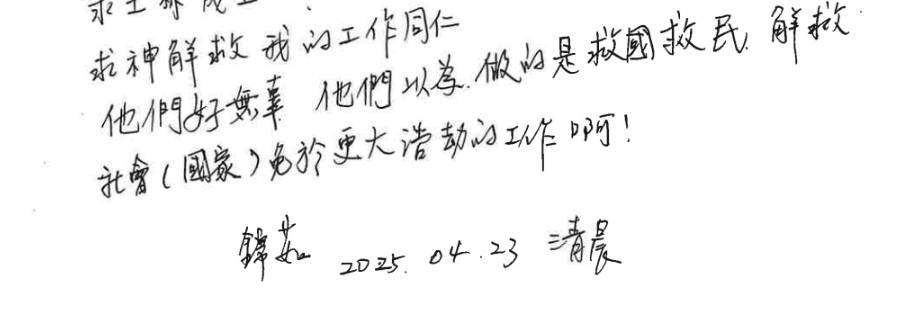 求主
求神解救我的工作同仁
他們好無辜 他們以為.做的是救國救民.解救.
社會(國家)免於更大浩劫的工作啊!
錦茹 2025.04.23 清晨